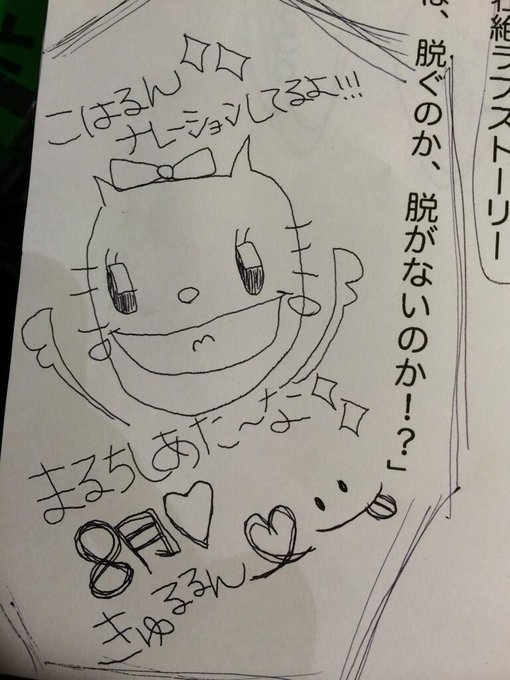 壮絶ラブストーリー
は、脱ぐのか、脱がないのか!?」
こはるん
ナレーションしてるよ!!!
まるちしあた〜だよ
8月♡
きゅるるん♡